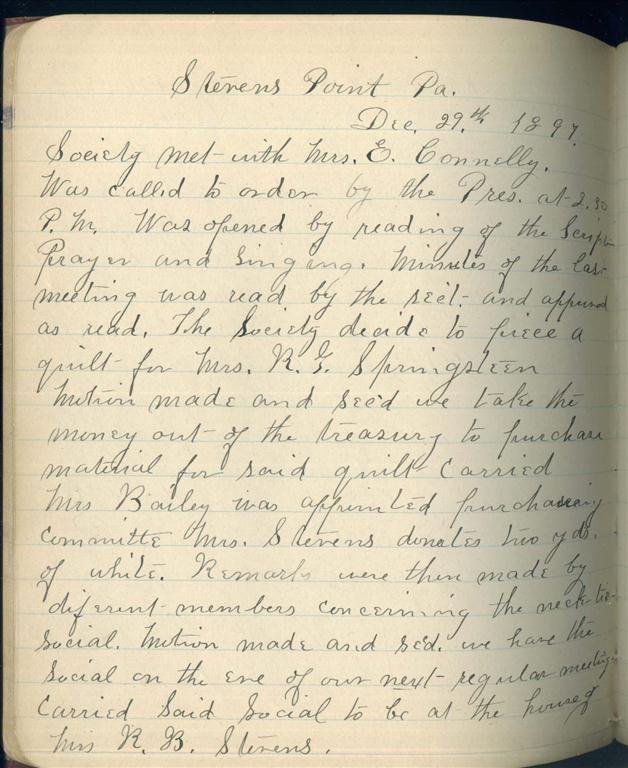 Stevens Point Pa.
Dec. 29.th 1897.
Society met with Mrs. E. Connelly.
Was called to order by the Pres. at 2.30
P.M. Was opened by reading of the Scripture
Prayer and singing. Minutes of the last
meeting was read by the sec't. and approved
as read. The Society decide to piece a
quilt for Mrs. R. G. Springsteen
Motion made and sec'd we take the
money out of the treasury to purchase
material for said quilt Carried
Mrs Bailey was appointed purchasing
committe Mrs. Stevens donates two yds.
of white. Remarks were then made by
diferent members concerning the neck-tie
social. Motion made and sec'd. we have the
social on the eve of our next regular meeting
Carried Said Social to be at the house of
Mrs R. B. Stevens.